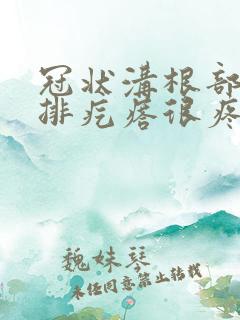 冠状溝根部
排疙瘩很疼
魏妹琴
未经同意禁止转载